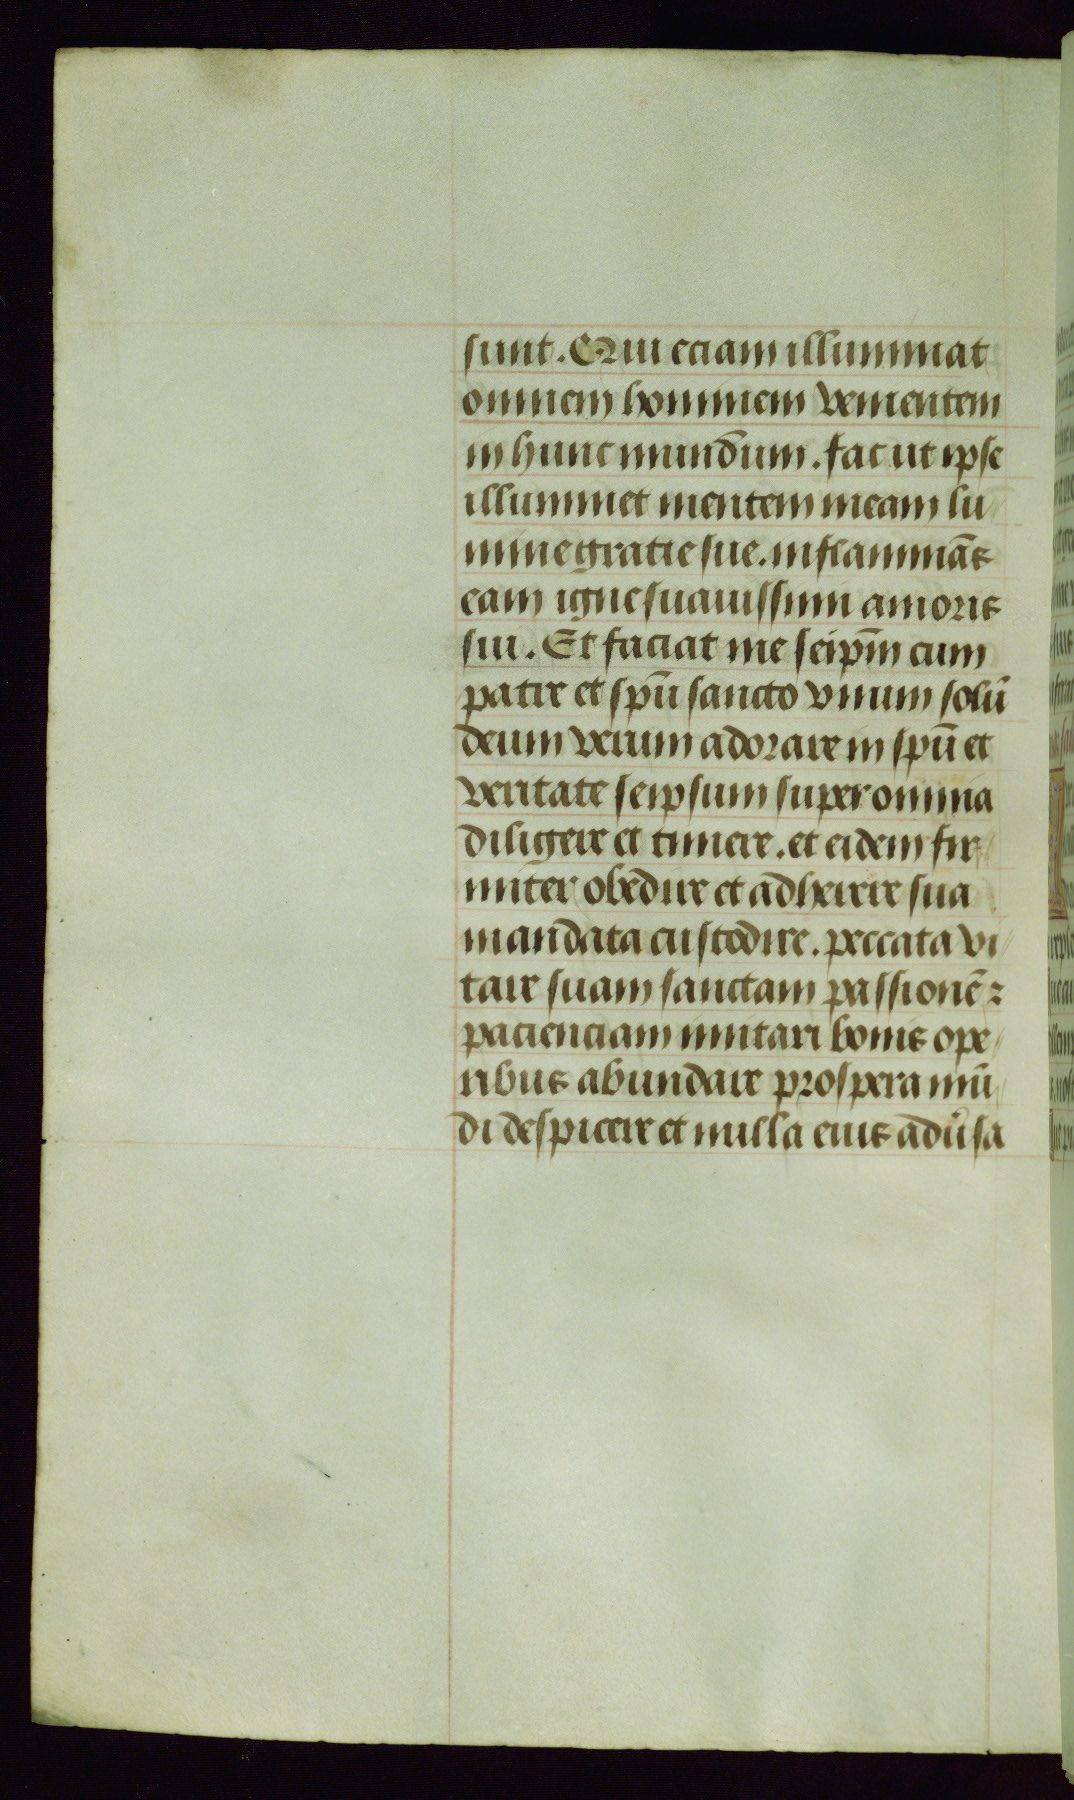 sunt. Qui eciam illuminat
omnem hominem venientem
in hunc mundum. fac ut ipse
illuminet mentem meam lu
mine gratie sue. inflammās
eam igne suauissimi amoris
sui. Et faciat me seip̄m cum
patre et sp̄u sancto vnum solū
deum verum adorare in sp̄u et
veritate seipsum super omnia
diligere et timere. et eidem fir
miter obedire et adherere sua
mandata custodire. peccata vi
tare suam sanctam passionē ⁊
pacienciam imitari bonis ope
ribus abundare prospera mū
di despicere et nulla eius adu̓sa